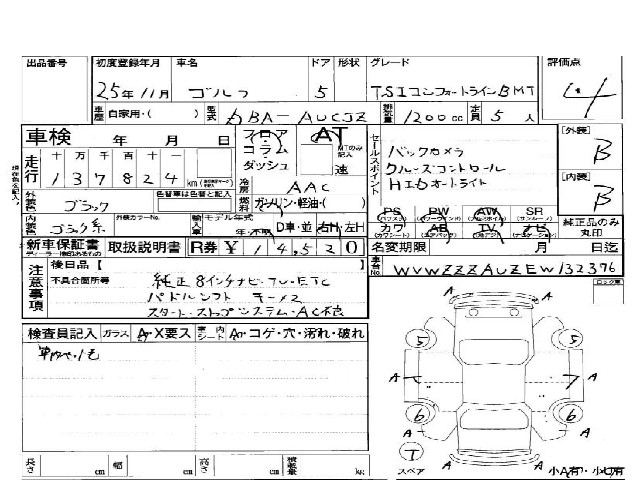 出品番号 初度登録年月 車名 ドア 形状 グレード 評価点
25年11月 ゴルフ 5 TSIコンフォートラインBMT 4
車歴 自家用・( ) 型式 DBA-AUCJZ 排気量 1200cc 定員 5人
車検 年 月 日 フロア コラム ダッシュ AT MTのみ記入 速
走行 十 万 千 百 十 一
137824 km
冷房 AAC
燃料 ガソリン・軽油・( )
セールスポイント
バックカメラ
クルーズコントロール
HIDオートライト
[外装] B
[内装] B
外装色 ブラック 色替車は色替と記入
内装色 ブラック系 外装カラーNo. 輸入車 モデル年式 年・不明 D車・並 右H・左H
PS PW AW SR
カワ AB TV ナビ
純正品のみ丸印
新車保証書 取扱説明書 R券 ¥14,520
名変期限 月 日迄
車台No. WVWZZZAUZEW132376
注意事項
後日品【 】
不具合箇所等
純正8インチナビ・TV・ETC
パドルシフト キー×2
スタート・ストップシステム・AC不良
検査員記入 ガラス A・X要ス 車内シート A・コゲ・穴・汚れ・破れ
車内ヤ・1も
ロック車
5 A A 5
A A 7 A
6 6
A A A
T
スペア
長さ cm 幅 cm 高さ cm 積載量 kg